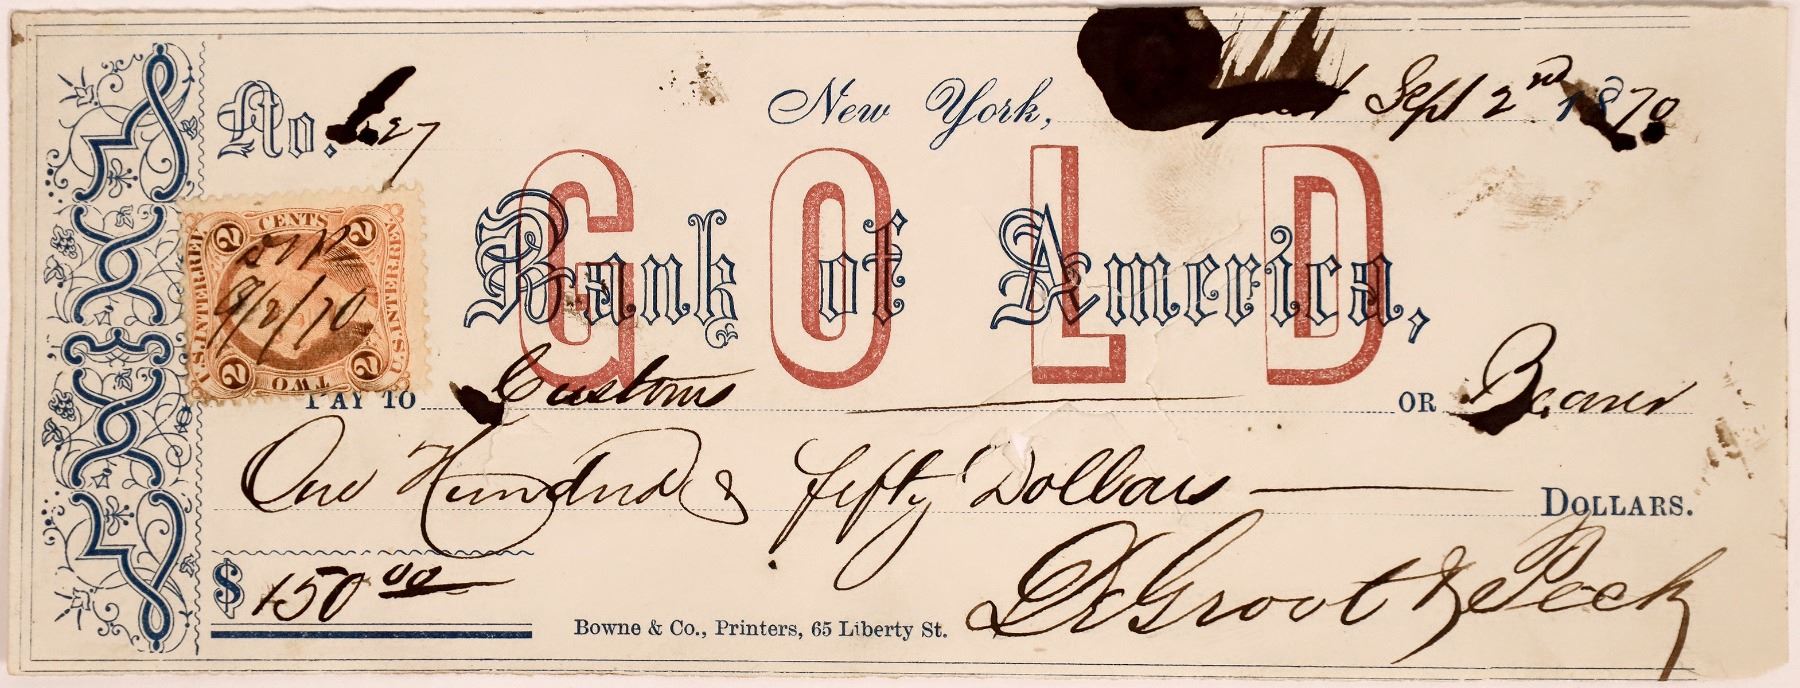 No. 27
New York, Sept 2nd 1870
GOLD
Bank of America,
2 CENTS 2
U.S. INTER. REV.
U.S. INTER. REV.
9/2/70
2 TWO 2
PAY TO Customs OR Bearer
One Hundred & fifty Dollars DOLLARS.
$ 150 00
DeGroot & Peck
Bowne & Co., Printers, 65 Liberty St.